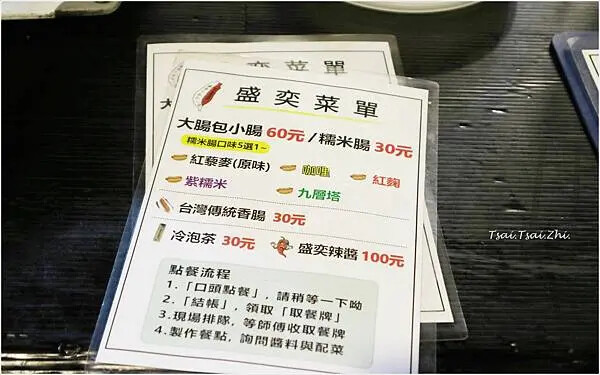 奕菜單
盛奕菜單
大腸包小腸 60元 / 糯米腸 30元
糯米腸口味5選1~
紅藜麥(原味) 咖哩 紅麴
紫糯米 九層塔
台灣傳統香腸 30元
冷泡茶 30元 盛奕辣醬 100元
點餐流程
1.「口頭點餐」, 請稍等一下呦
2.「結帳」, 領取「取餐牌」
3.現場排隊, 等師傅收取餐牌
4.製作餐點, 詢問醬料與配菜
Tsai.Tsai.Zhi.